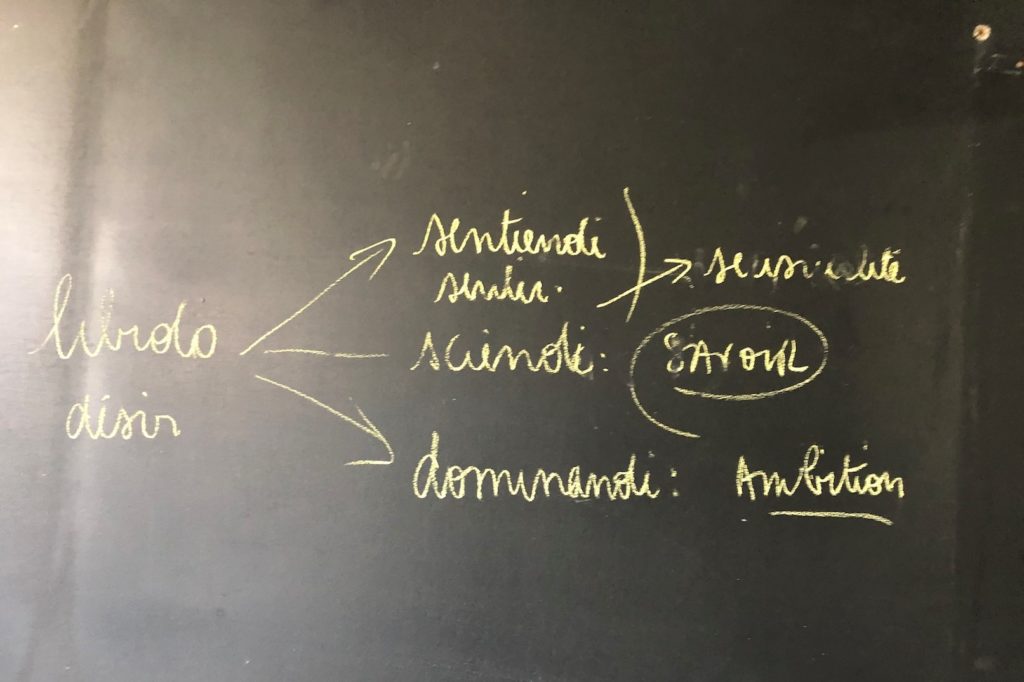 libido
désir
sentiendi
sentir.
sensualité
sciendi: SAVOIR
dominandi: Ambition